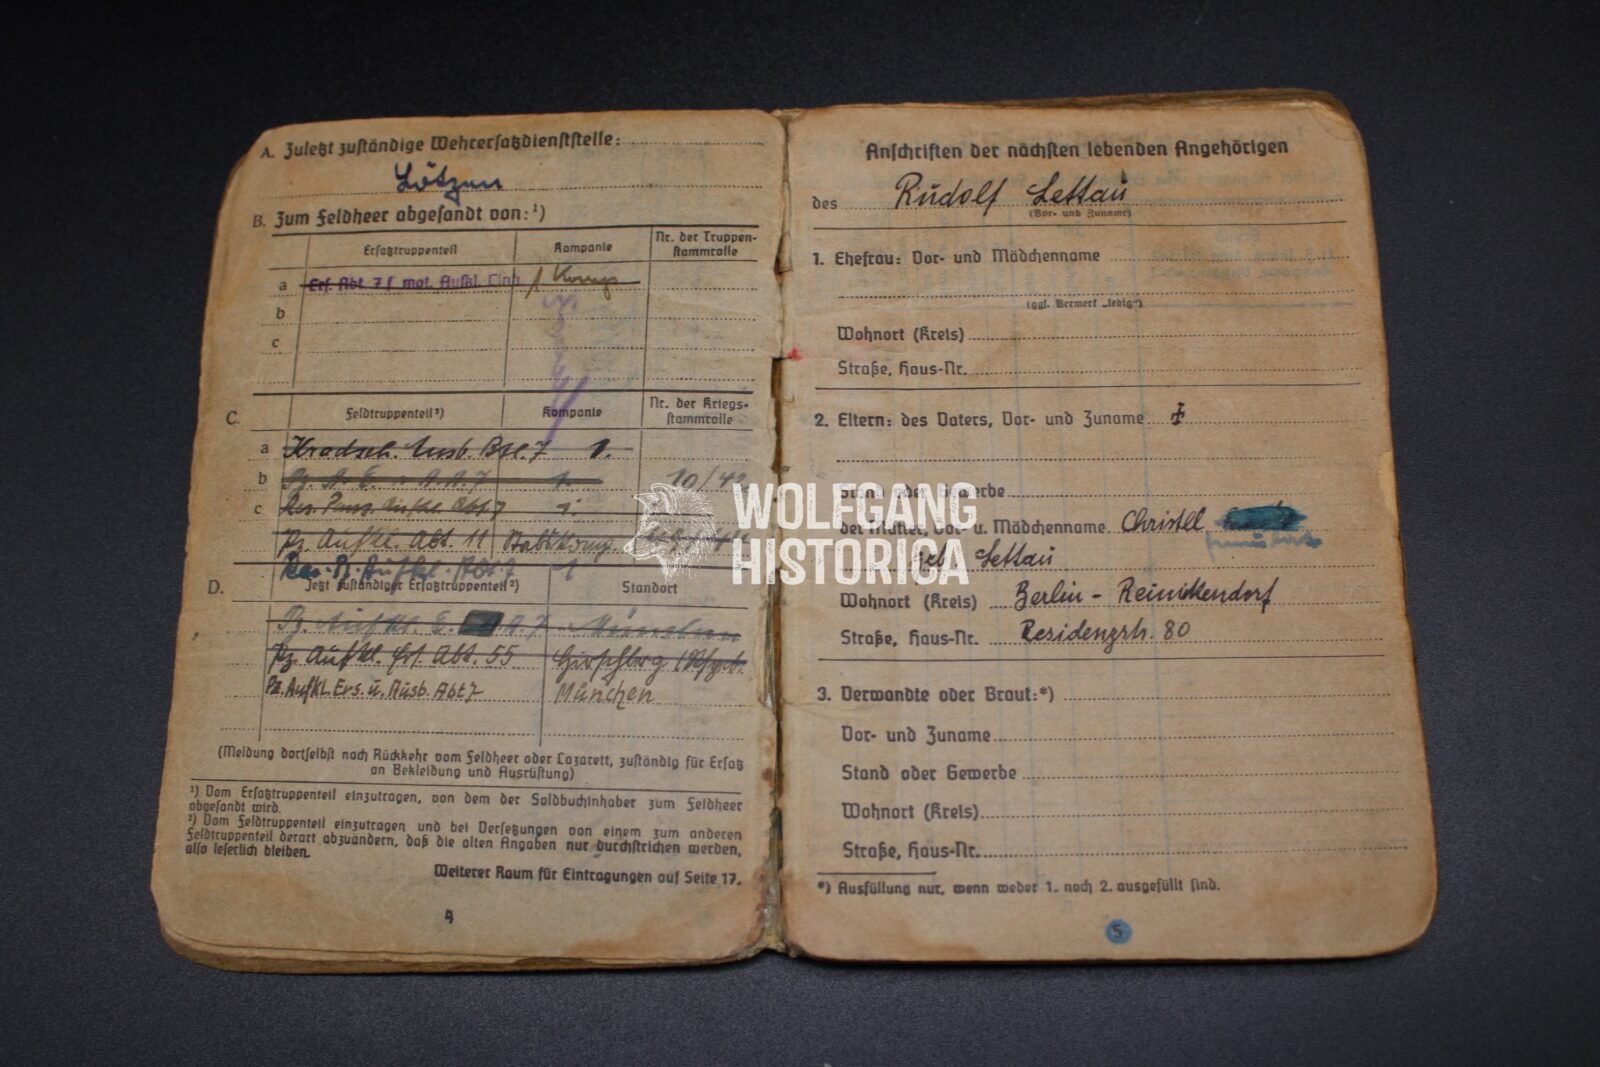 A. Zuletzt zuständige Wehrersatzdienststelle:
Lötzen
B. Zum Feldheer abgesandt von:¹)
Ersatztruppenteil Kompanie Nr. der Truppenstammrolle
a Ers. Abt. 7 f. mot. Aufkl. Einh. 1 Komp
b
c
C. Feldtruppenteil²) Kompanie Nr. der Kriegsstammrolle
a Kradsch. Ausb. Btl. 7 1.
b A. A. 7 1. 10/42
c Res. Panz. Aufkl. Abt 7 1.
Pz. Aufkl. Abt. 11 Stabskomp.
Res. Pz. Aufkl. Abt. 7 1
D. Jetzt zuständiger Ersatztruppenteil²) Standort
Pz. Aufkl. E. A. 7 München
Pz. Aufkl. Ers. Abt. 55 Hirschberg
Pz. Aufkl. Ers. u. Ausb. Abt 7 München
(Meldung dortselbst nach Rückkehr vom Feldheer oder Lazarett, zuständig für Ersatz
an Bekleidung und Ausrüstung)
¹) Vom Ersatztruppenteil einzutragen, von dem der Soldbuchinhaber zum Feldheer
abgesandt wird.
²) Vom Feldtruppenteil einzutragen und bei Versetzungen von einem zum anderen
Feldtruppenteil derart abzuändern, daß die alten Angaben nur durchstrichen werden,
also leserlich bleiben.
Weiterer Raum für Eintragungen auf Seite 17.
4
Anschriften der nächsten lebenden Angehörigen
des Rudolf Lettau
(Vor- und Zuname)
1. Ehefrau: Vor- und Mädchenname
(ggf. Vermerk „ledig")
Wohnort (Kreis)
Straße, Haus-Nr.
2. Eltern: des Vaters, Vor- und Zuname ‡
Stand oder Gewerbe
der Mutter, Vor- u. Mädchenname Christel
geb. Lettau
Wohnort (Kreis) Berlin - Reinickendorf
Straße, Haus-Nr. Residenzstr. 80
3. Verwandte oder Braut:*)
Vor- und Zuname
Stand oder Gewerbe
Wohnort (Kreis)
Straße, Haus-Nr.
*) Ausfüllung nur, wenn weder 1. noch 2. ausgefüllt sind.
5
WOLFGANG
HISTORICA